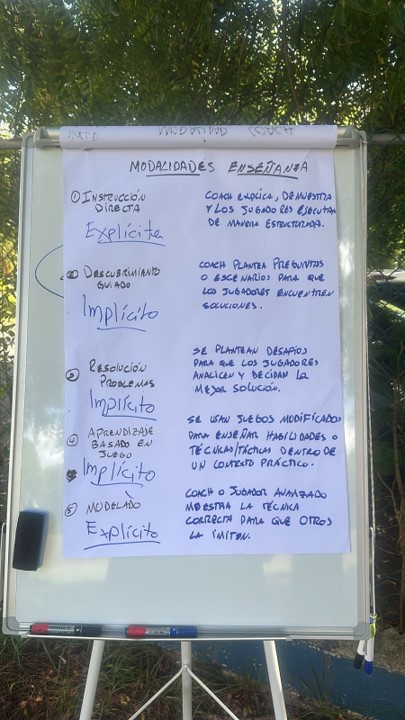 MODALIDAD COACH
MODALIDADES ENSEÑANZA
① INSTRUCCIÓN
DIRECTA
Explícite
COACH EXPLICA, DEMUESTRA
Y LOS JUGADORES EJECUTAN
DE MANERA ESTRUCTURADA.
② DESCUBRIMIENTO
GUIADO
Implícito
COACH PLANTEA PREGUNTAS
O ESCENARIOS PARA QUE
LOS JUGADORES ENCUENTREN
SOLUCIONES.
③ RESOLUCIÓN
PROBLEMAS
Implícito
SE PLANTEAN DESAFÍOS
PARA QUE LOS JUGADORES
ANALICEN Y DECIDAN LA
MEJOR SOLUCIÓN.
④ APRENDIZAJE
BASADO EN
JUEGO
Implícito
SE USAN JUEGOS MODIFICADOS
PARA ENSEÑAR HABILIDADES O
TÉCNICAS/TÁCTICAS DENTRO DE
UN CONTEXTO PRÁCTICO.
⑤ MODELADO
Explícito
COACH O JUGADOR AVANZADO
MUESTRA LA TÉCNICA
CORRECTA PARA QUE OTROS
LA IMITEN.